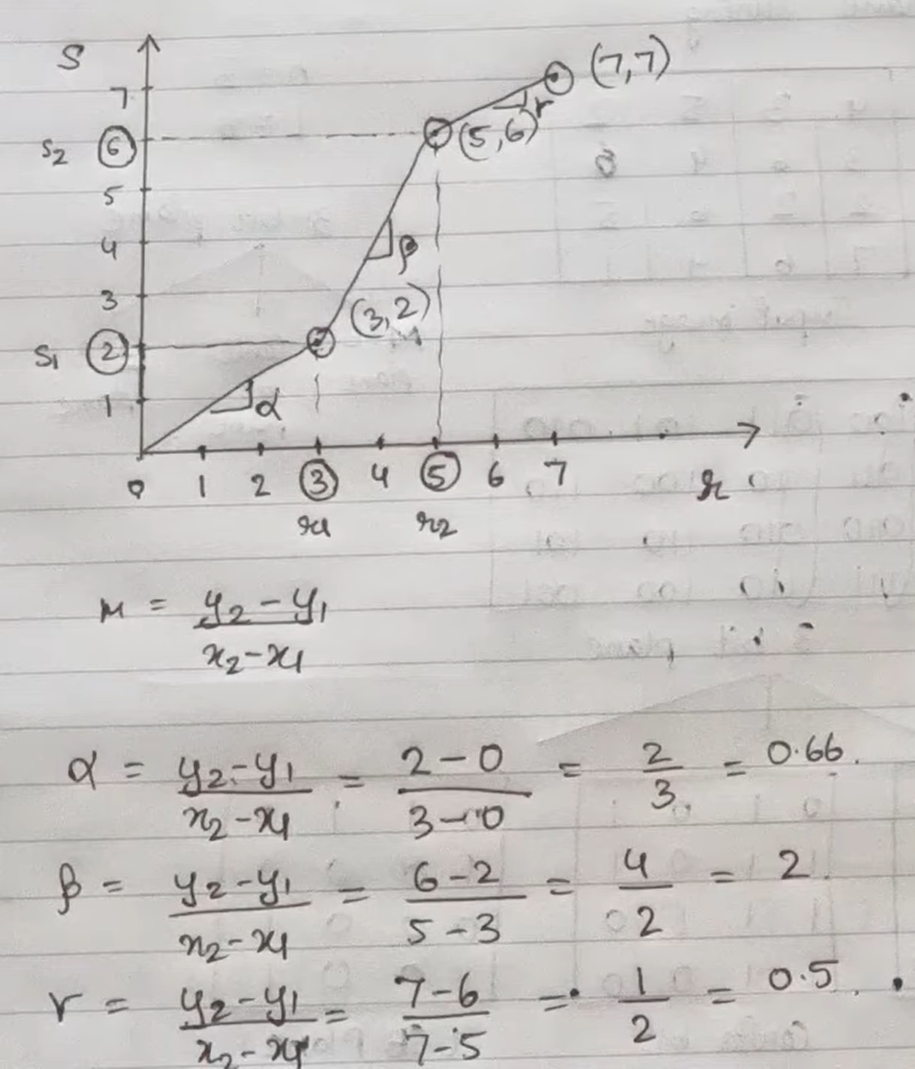 S
7 (7,7)
S2 6 (5,6) r
5
4 β
3
(3,2)
S1 2
1 α
0 1 2 3 4 5 6 7 r
r1 r2
m = y2-y1 / x2-x1
α = y2-y1 / x2-x1 = 2-0 / 3-0 = 2 / 3 = 0.66.
β = y2-y1 / x2-x1 = 6-2 / 5-3 = 4 / 2 = 2.
r = y2-y1 / x2-x1 = 7-6 / 7-5 = 1 / 2 = 0.5.